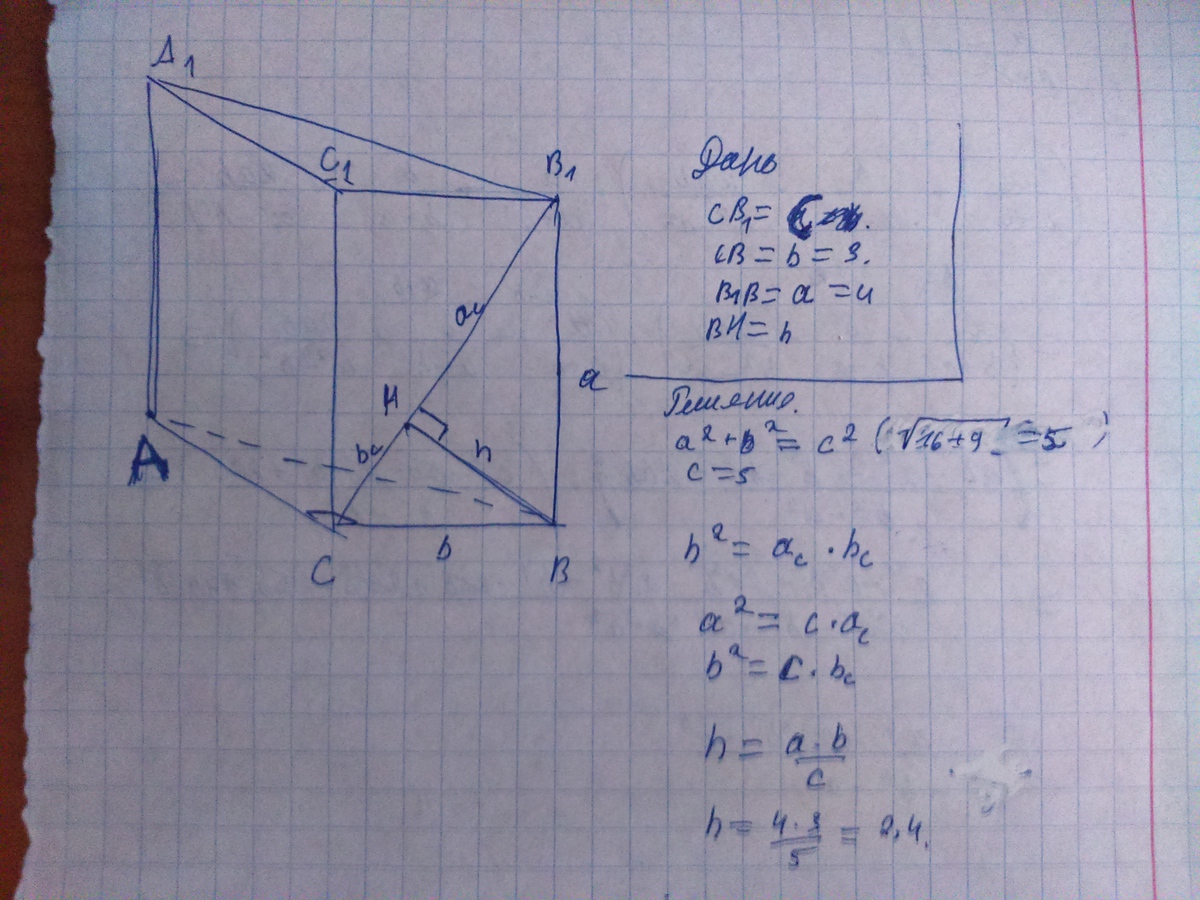 A1
C1
B1
ac
a
H
bc
h
A
C
b
B
Дано
CB1 =
CB = b = 3.
B1B = a = 4
BH = h
Решение.
a² + b² = c² (√16+9 = 5)
c = 5
h² = ac · bc
a² = c · ac
b² = c · bc
h = a · b / c
h = 4 · 3 / 5 = 2,4.